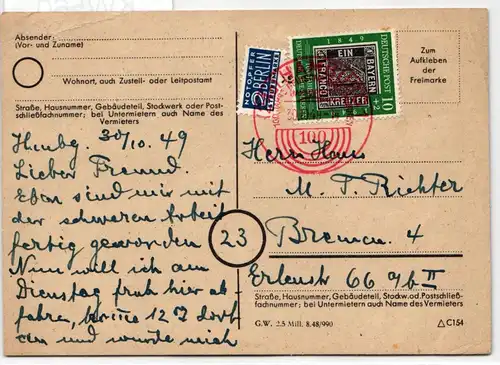 Absender:
(Vor- und Zuname)
Wohnort, auch Zustell- oder Leitpostamt
Straße, Hausnummer, Gebäudeteil, Stockwerk oder Post-
schließfachnummer; bei Untermietern auch Name des
Vermieters
Hmbg. 30/10. 49
Lieber Freund.
Eben sind wir mit
der schweren Arbeit
fertig geworden
Nun will ich am
Dienstag früh hier ab-
fahren, 12 dort
und
NOTOPFER
2 BERLIN
STEUERMARKE
1849
DEUTSCHE POST
EIN
BAYERN
FRANCO
KREUZER
10+2
100
Zum
Aufkleben
der
Freimarke
Herrn Hans
M. F. Richter
23
Bremen 4
66
Straße, Hausnummer, Gebäudeteil, Stockw. od. Postschließ-
fachnummer; bei Untermietern auch Name des Vermieters
G.W. 2.5 Mill. 8.48/990
△ C 154